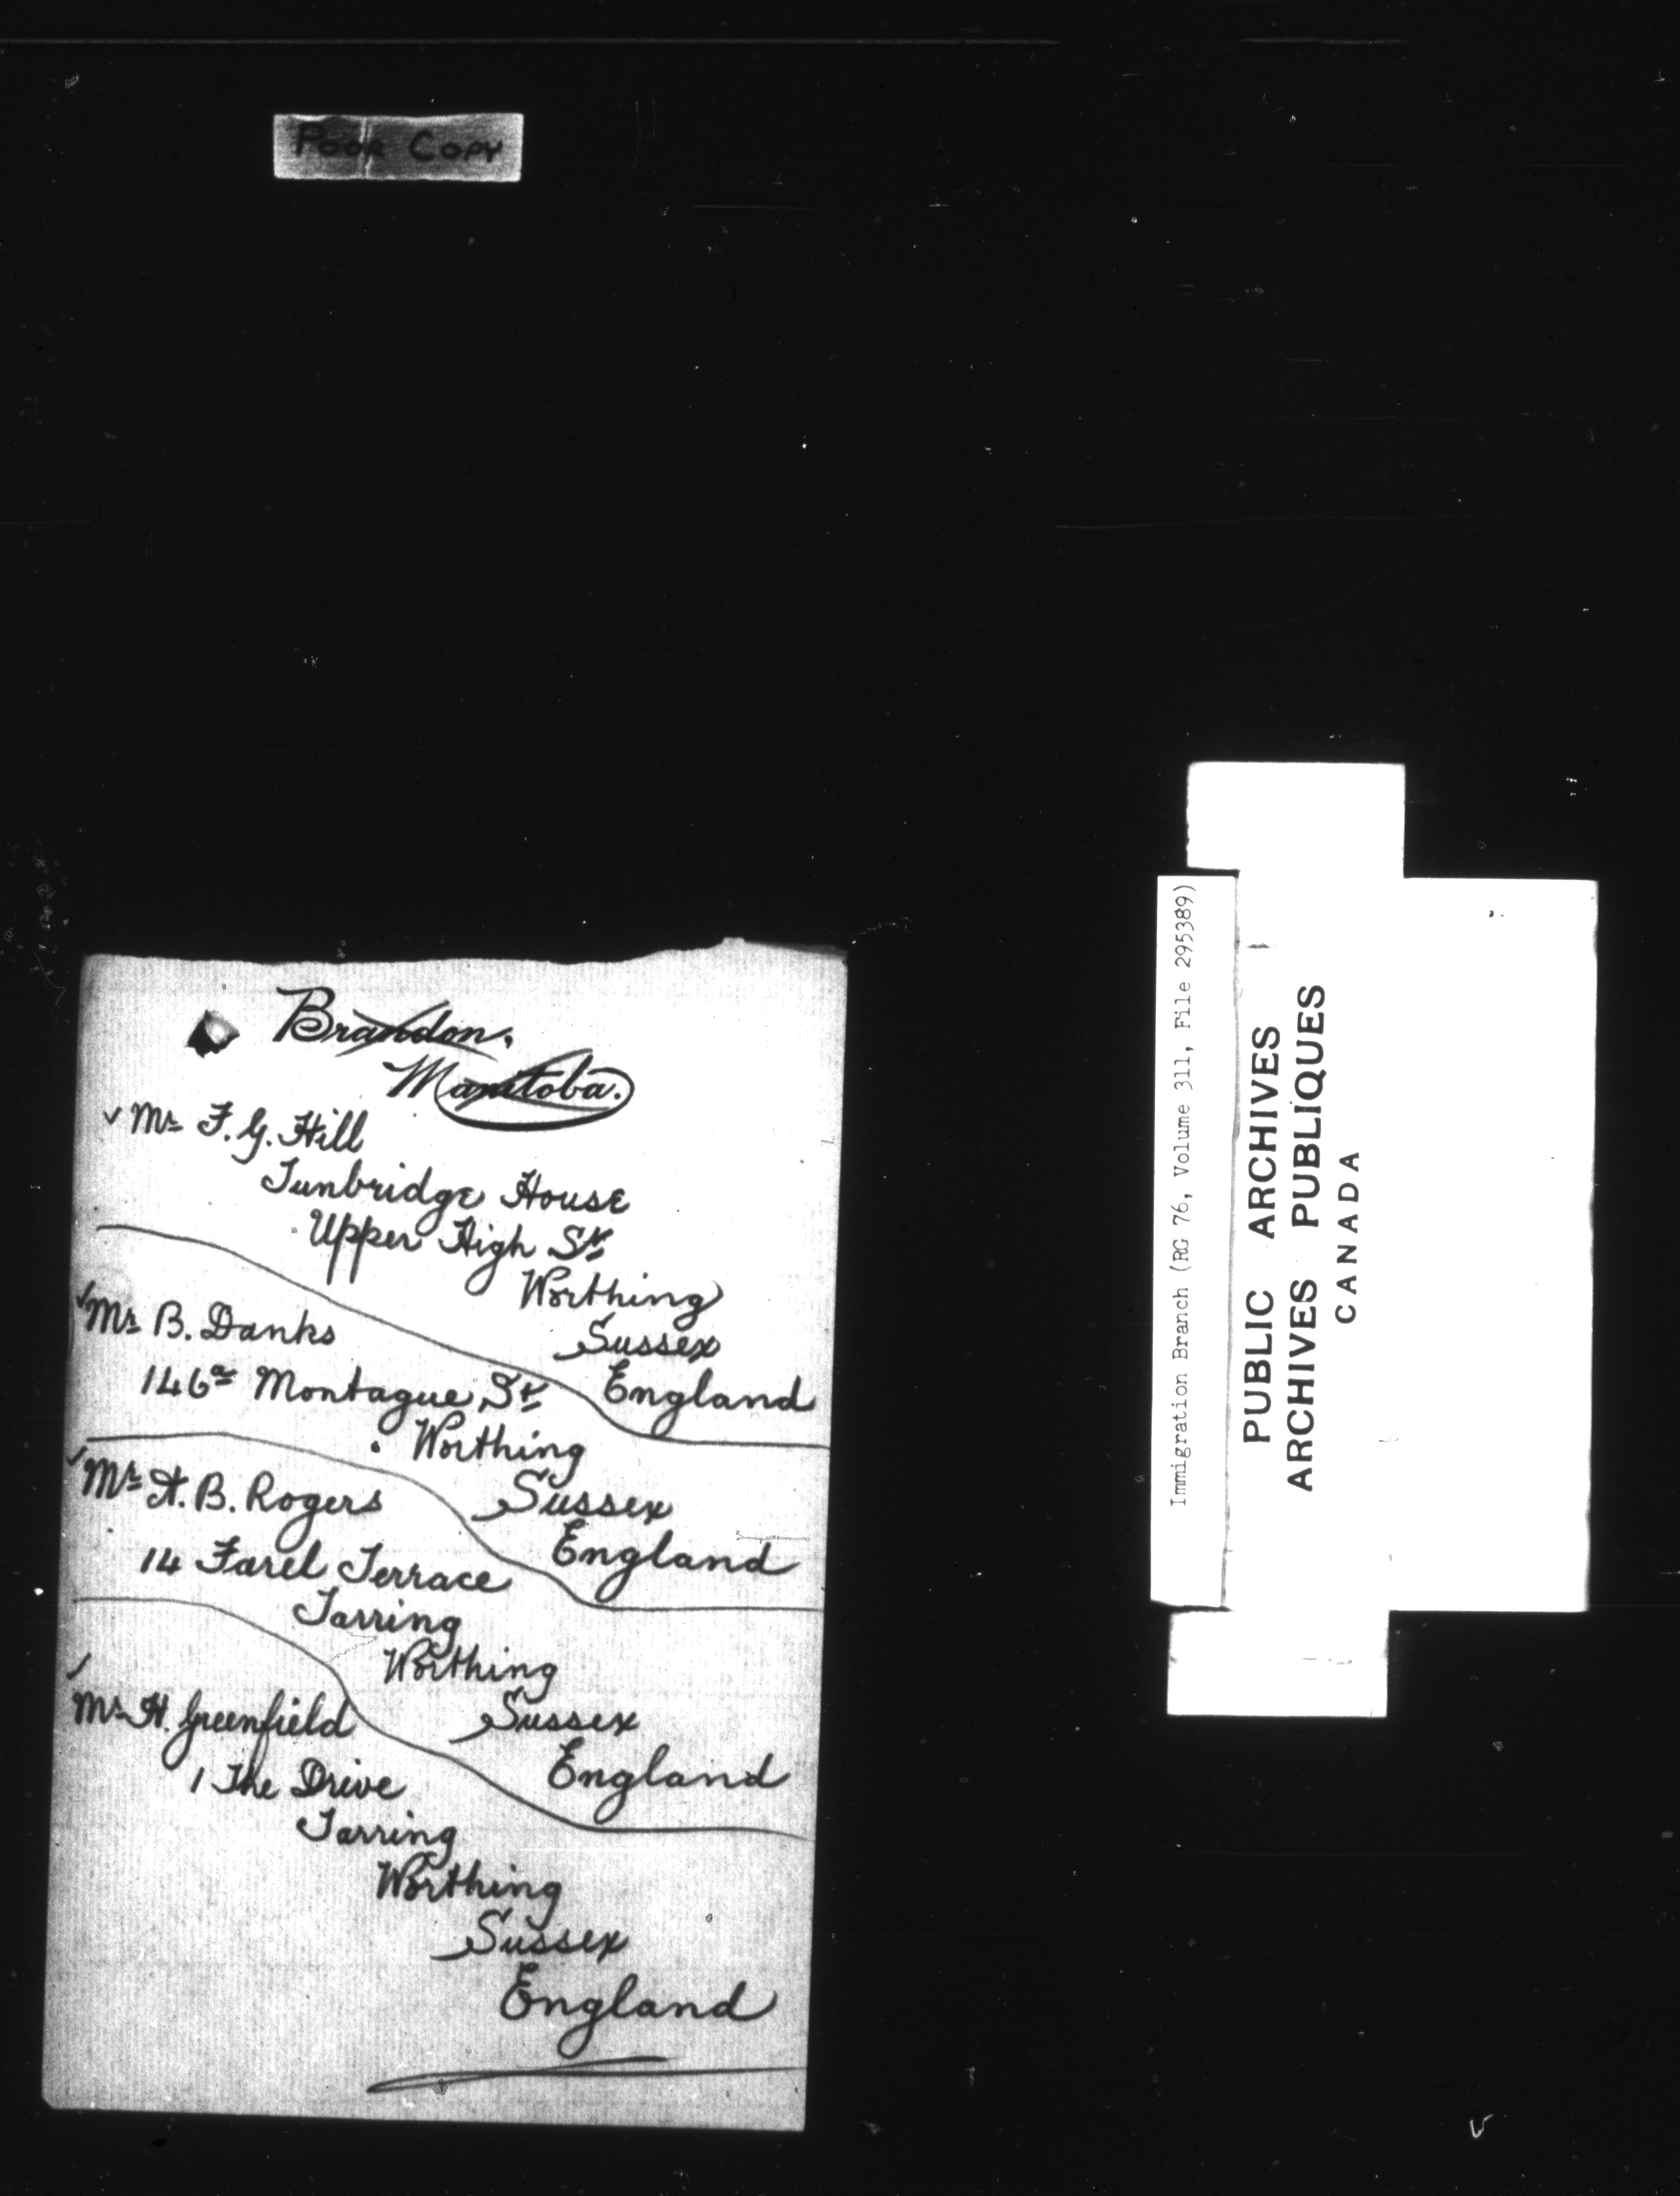 Poor Copy
Brandon.
Manitoba.
✓ Mr F. G. Hill
Tunbridge House
Upper High St
Worthing
Sussex
England
✓ Mr B. Danks
146a Montague St
Worthing
Sussex
England
✓ Mr A. B. Rogers
14 Farel Terrace
Tarring
Worthing
Sussex
England
✓ Mr H. Greenfield
1 The Drive
Tarring
Worthing
Sussex
England
Immigration Branch (RG 76, Volume 311, File 295389)
PUBLIC ARCHIVES
ARCHIVES PUBLIQUES
CANADA